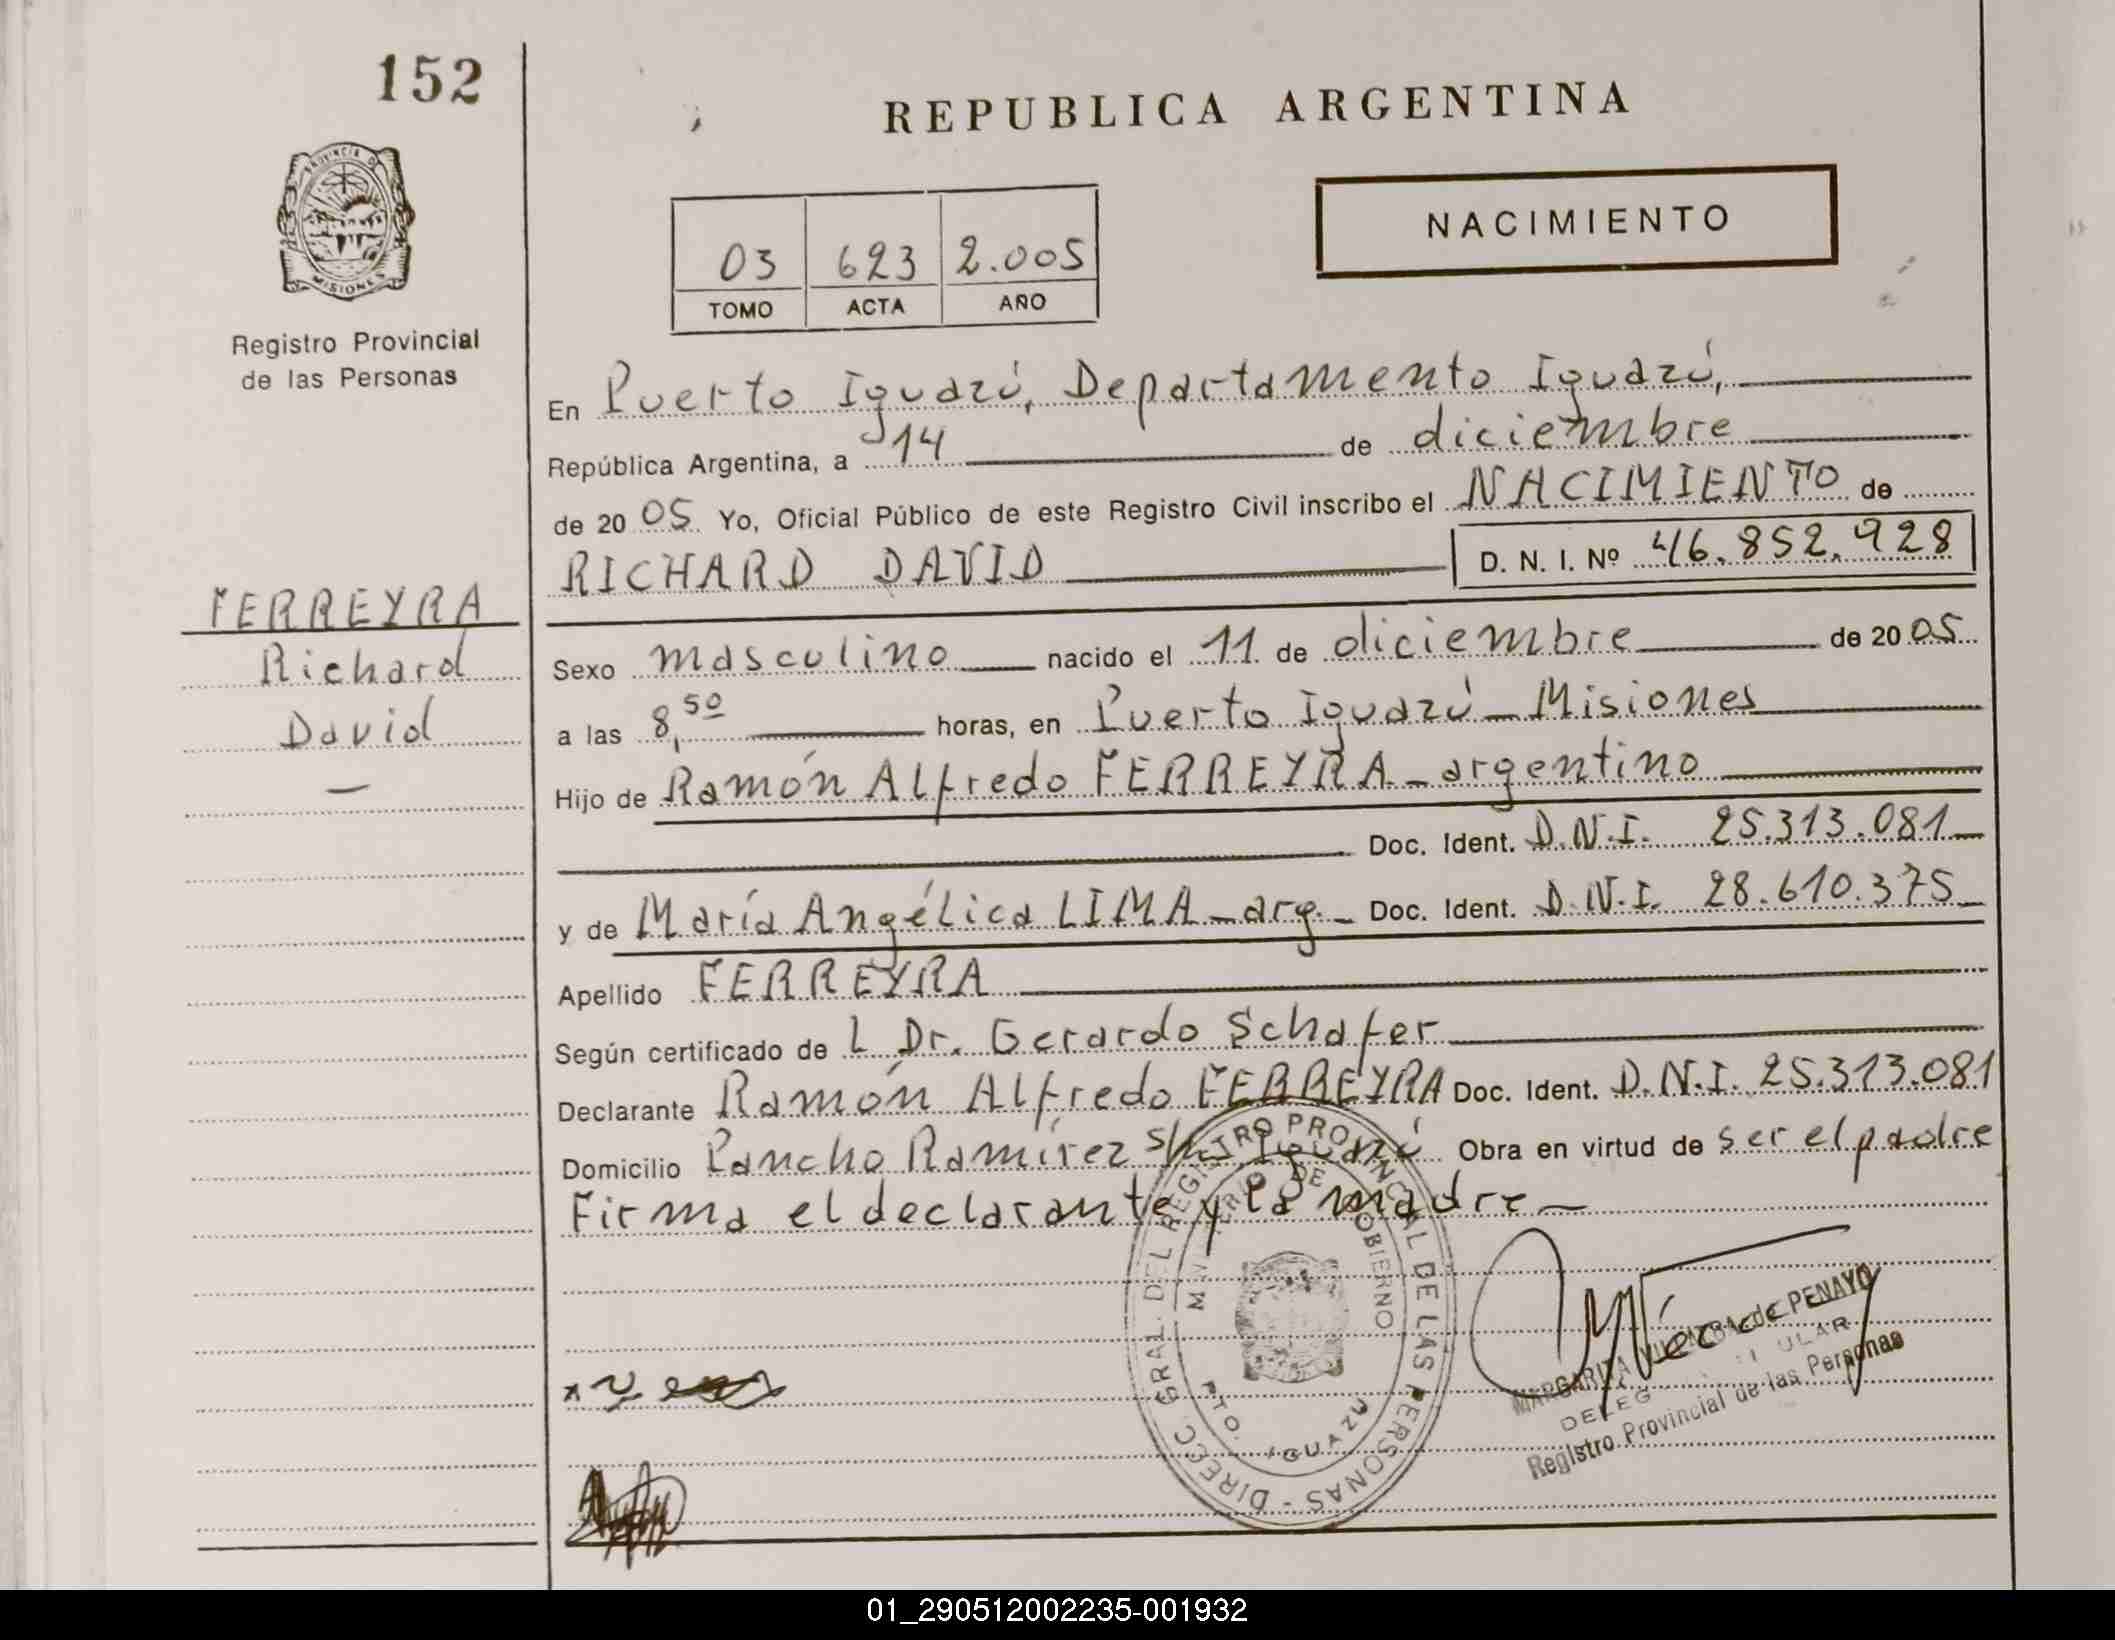 152
REPUBLICA ARGENTINA
PROVINCIA D
MISIONES
NACIMIENTO
03 623 2.005
TOMO ACTA AÑO
Registro Provincial
de las Personas
En Puerto Iguazú, Departamento Iguazú,
República Argentina, a 14 de diciembre
de 20 05 Yo, Oficial Público de este Registro Civil inscribo el NACIMIENTO de
RICHARD DAVID D. N. I. Nº 46.852.928
FERREYRA
Richard
David
Sexo masculino nacido el 11 de diciembre de 20 05
a las 8,50 horas, en Puerto Iguazú - Misiones
Hijo de Ramón Alfredo FERREYRA - argentino
Doc. Ident. D.N.I. 25.313.081
y de María Angélica LIMA - arg. - Doc. Ident. D.N.I. 28.610.375
Apellido FERREYRA
Según certificado de l Dr. Gerardo Schafer
Declarante Ramón Alfredo FERREYRA Doc. Ident. D.N.I. 25.313.081
Domicilio Pancho Ramírez s/n Iguazú Obra en virtud de ser el padre
Firma el declarante y la madre
DIRECC GRAL. DEL REGISTRO PROVINCIAL DE LAS PERSONAS -
MINISTERIO DE GOBIERNO
PTO. IGUAZU
MARGARITA de PENAYO
Registro Provincial de las Personas
01_290512002235-001932